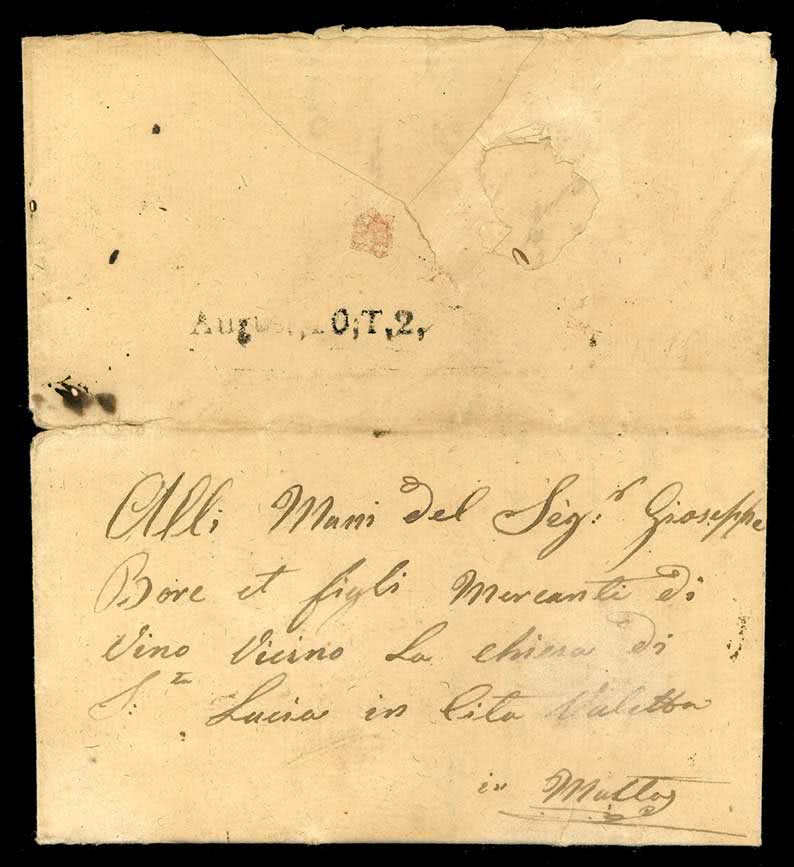 August, 10, T, 2,
Alli Mani del Sèg:r Gioseppe
Bore et figli Mercanti di
Vino Vicino La chiesa di
S:ta Lucia in Cita Valetta
in Malta